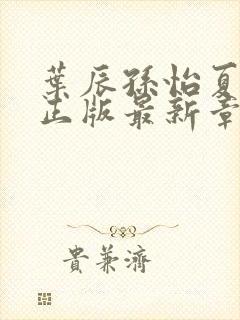 葉辰孫怡夏
正版最新章
貴兼濟